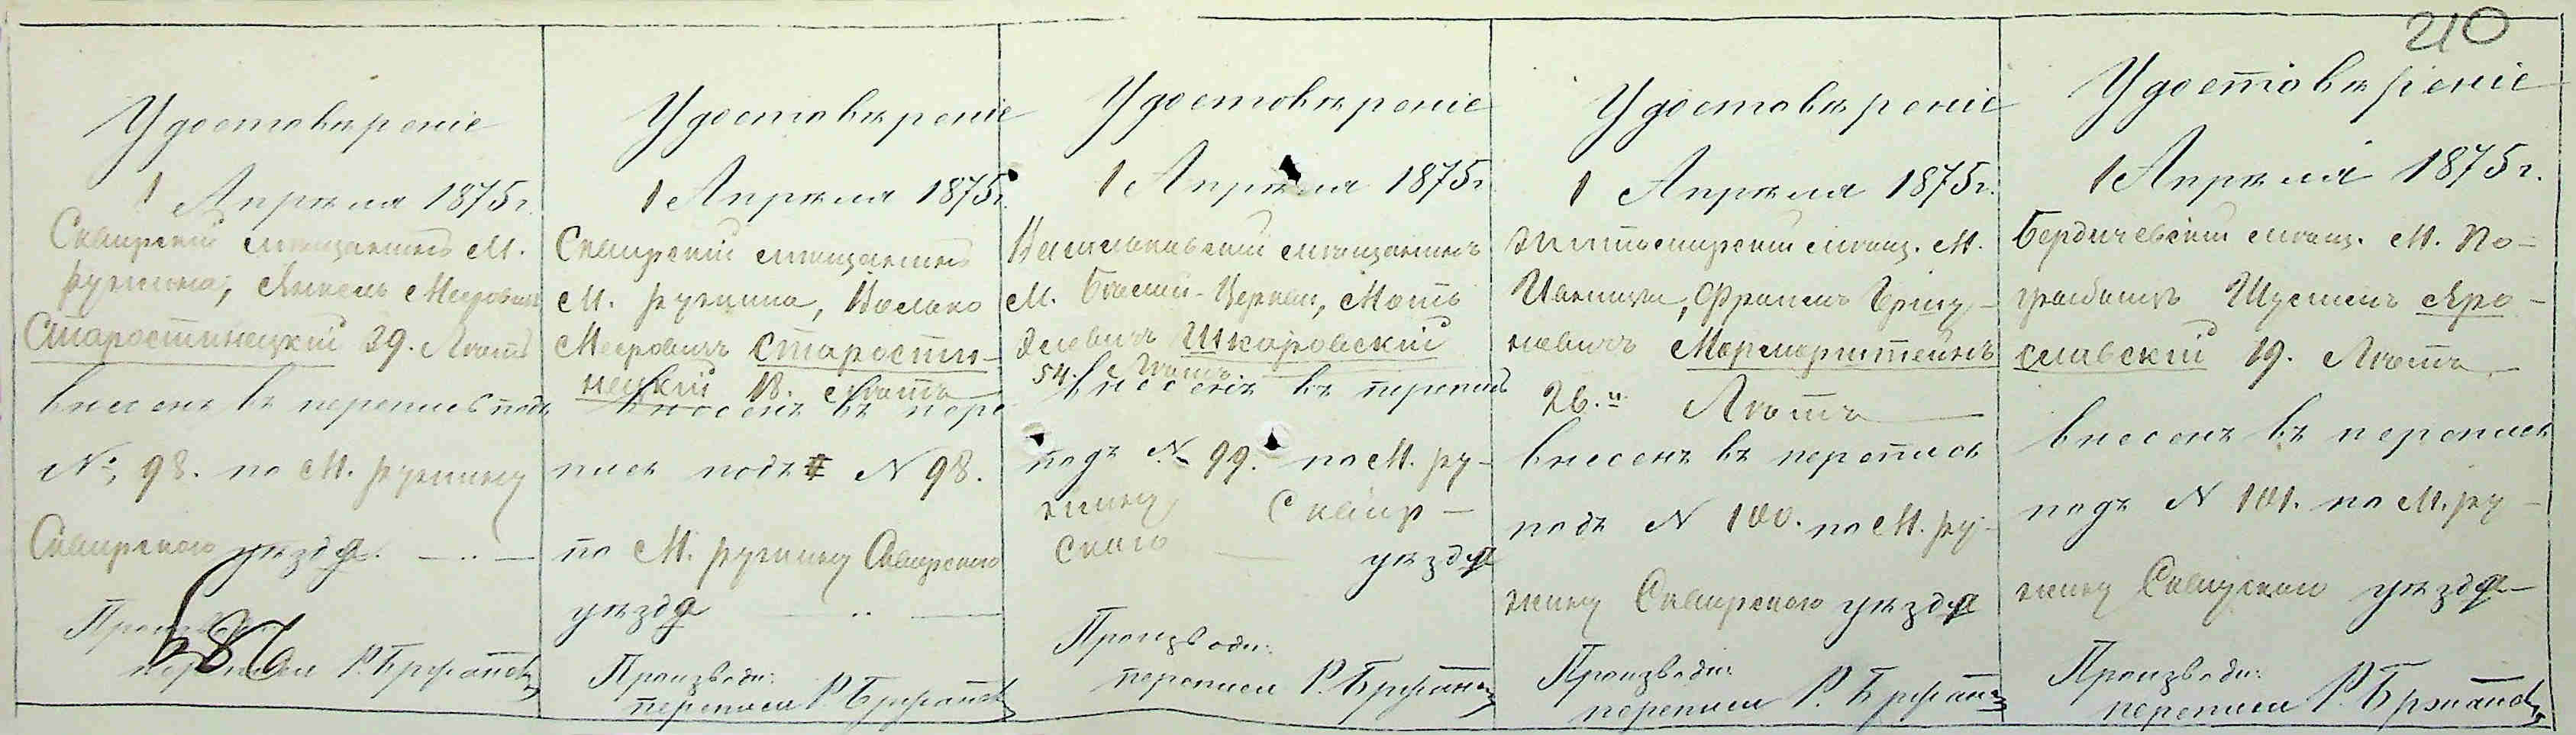 210
Удостовѣреніе
1 Апрѣля 1875г.
Сквирскій мѣщанинъ М.
Ружина, Янкель Мееровичъ
Старостинецкій 29. Лѣтъ
внесенъ въ перепись подъ
№ 98. по М. Ружину
Сквирскаго уѣзда.
Производ.
переписи Р.
686
Удостовѣреніе
1 Апрѣля 1875г.
Сквирскій мѣщанинъ
М. Ружина, Волько
Мееровичъ Старостин-
нецкій 18. Лѣтъ
внесенъ въ пере
пись подъ N 98.
по М. Ружину Сквирскаго
уѣзда
Производи:
переписи Р.
Удостовѣреніе
1 Апрѣля 1875г.
Васильковскій мѣщанинъ
М. Бѣлой-Церкви, Мотъ
Шкаровскій
54. Лѣтъ
внесенъ въ перепись
подъ № 99. по М. Ру-
жину Сквир-
скаго уѣзда
Производи:
переписи Р.
Удостовѣреніе
1 Апрѣля 1875г.
Житомирскій мѣщ. М.
Ивницы, Фроимъ
Мармарштейнъ
26.ᵘ Лѣтъ
внесенъ въ перепись
подъ N 100. по М. Ру-
жину Сквирскаго уѣзда
Производи:
переписи Р.
Удостовѣреніе
1 Апрѣля 1875г.
Бердичевскій мѣщ. М. По-
гребищъ Шусмель Яро-
славскій 19. Лѣтъ
внесенъ въ перепись
подъ N 101. по М. Ру-
жину Сквирскаго уѣзда
Производи:
переписи Р.